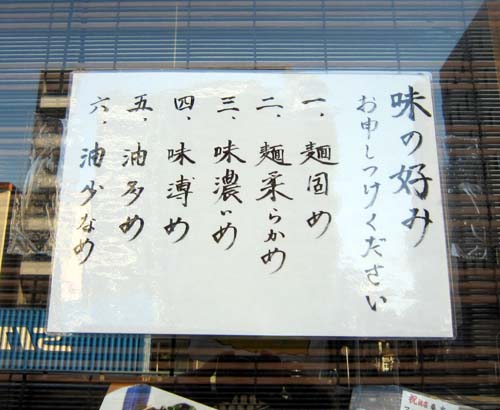 味の好み
お申しつけください
一、麺固め
二、麺柔らかめ
三、味濃いめ
四、味薄め
五、油多め
六、油少なめ